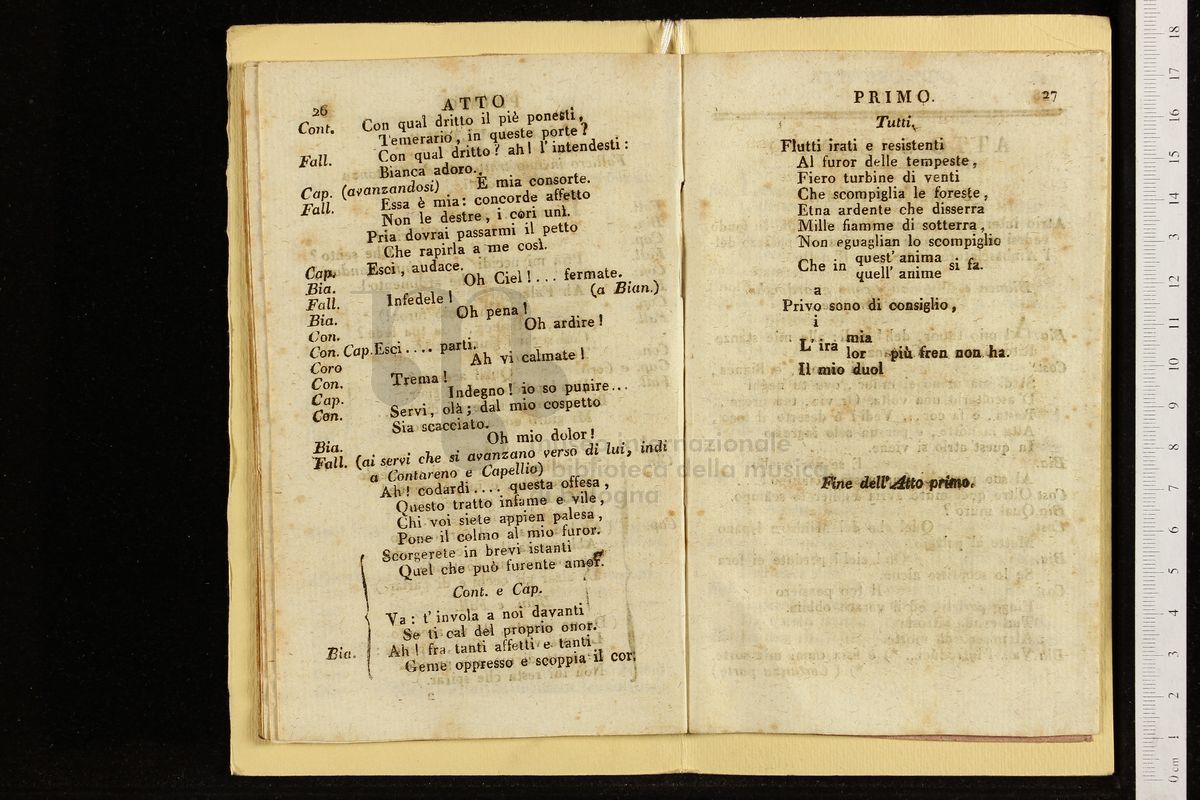 26
ATTO
Cont. Con qual dritto il piè ponesti,
Temerario, in queste porte?
Fall. Con qual dritto? ah! l'intendesti:
Bianca adoro.
Cap. (avanzandosi) E mia consorte.
Fall. Essa è mia: concorde affetto
Non le destre, i cori unì.
Pria dovrai passarmi il petto
Che rapirla a me così.
Cap. Esci, audace.
Bia. Oh Ciel!... fermate.
Fall. Infedele! (a Bian.)
Bia. Oh pena!
Con. Oh ardire!
Con. Cap. Esci.... parti.
Coro Ah vi calmate!
Con. Trema!
Cap. Indegno! io so punire...
Con. Servi, olà; dal mio cospetto
Sia scacciato.
Bia. Oh mio dolor!
Fall. (ai servi che si avanzano verso di lui, indi
a Contareno e Capellio)
Ah! codardi.... questa offesa,
Questo tratto infame e vile,
Chi voi siete appien palesa,
Pone il colmo al mio furor.
Scorgerete in brevi istanti
Quel che può furente amor.
Cont. e Cap.
Va: t'invola a noi davanti
Se ti cal del proprio onor.
Bia. Ah! fra tanti affetti e tanti
Geme oppresso e scoppia il cor.
PRIMO.
27
Tutti.
Flutti irati e resistenti
Al furor delle tempeste,
Fiero turbine di venti
Che scompiglia le foreste,
Etna ardente che disserra
Mille fiamme di sotterra,
Non eguaglian lo scompiglio
Che in quest' anima
quell' anime si fa.
a
Privo sono di consiglio,
i
L' ira mia
lor più fren non ha.
Il mio duol
Fine dell' Atto primo.
museo internazionale
biblioteca della musica
bologna
0 cm 1 2 3 4 5 6 7 8 9 10 11 12 13 14 15 16 17 18